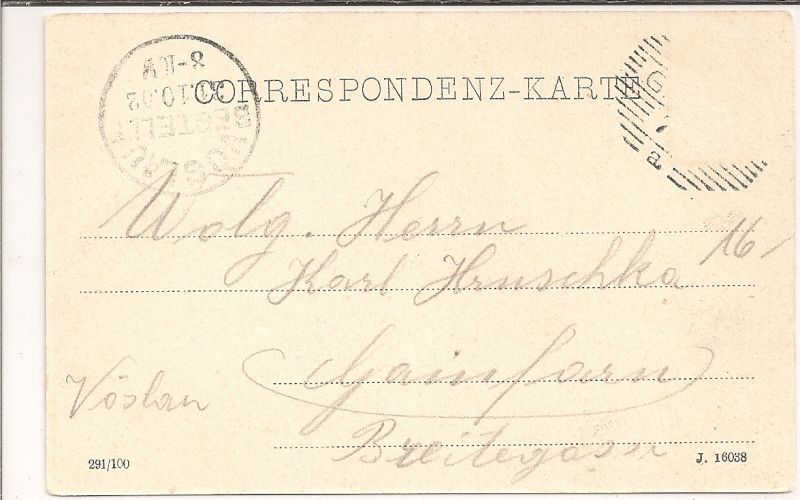 CORRESPONDENZ-KARTE
8-11V
10.02
BESTELLT
VÖSLAU
a
Wolg. Herrn
16-
Karl Hruschka
Gainfarn
Vöslau
Breitegasse
291/100
J. 16038